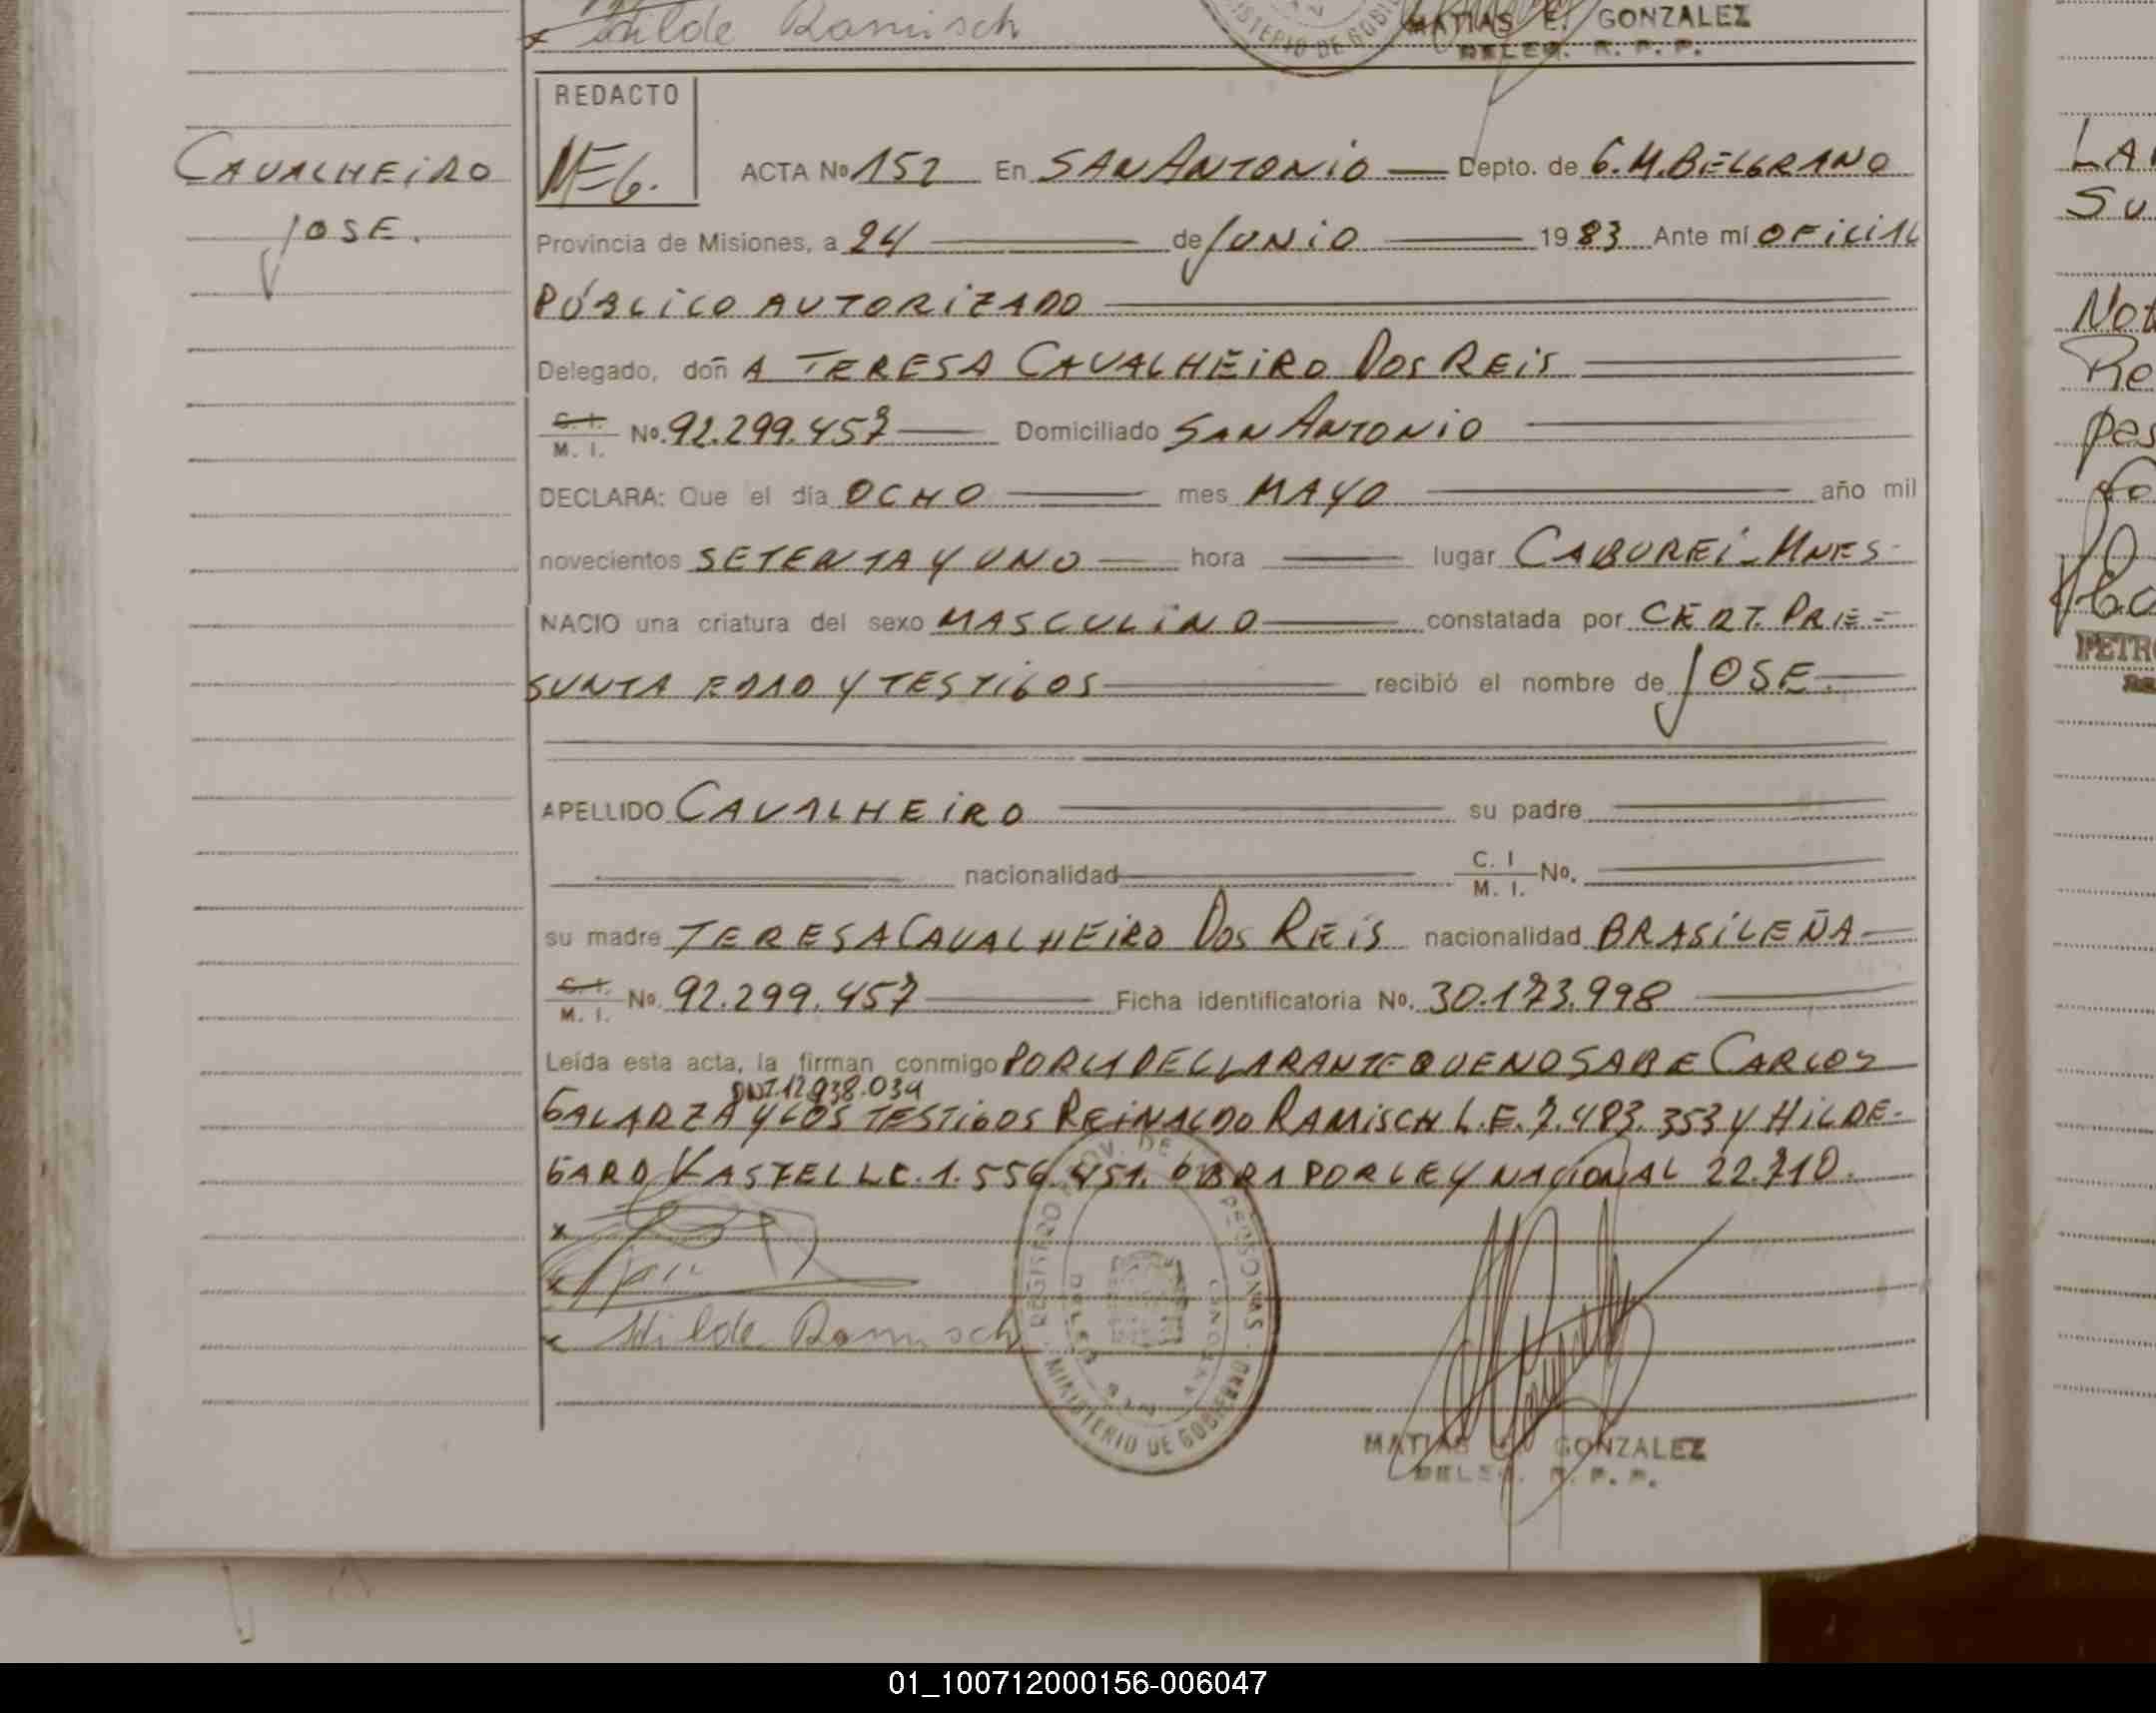 Hilde Ramisch
MINISTERIO DE GOBI
MATIAS E. GONZALEZ
DELEG. R. P. P.
CAVALHEIRO
JOSE.
REDACTO
MEG.
ACTA No 152 En SAN ANTONIO — Depto. de G.M.BELGRANO
Provincia de Misiones, a 24 — de JUNIO — 1983 Ante mí OFICIAL
PÚBLICO AUTORIZADO
Delegado, doñ A TERESA CAVALHEIRO DOS REIS
C. I. M. I. No. 92.299.457 — Domiciliado SAN ANTONIO
DECLARA: Que el día OCHO — mes MAYO — año mil
novecientos SETENTA Y UNO — hora — lugar CABUREI-MNES-
NACIO una criatura del sexo MASCULINO — constatada por CERT. PRE-
SUNTA EDAD Y TESTIGOS — recibió el nombre de JOSE.
APELLIDO CAVALHEIRO — su padre
nacionalidad — C. I M. I. No.
su madre TERESA CAVALHEIRO DOS REIS nacionalidad BRASILEÑA
C. I. M. I. No. 92.299.457 — Ficha identificatoria No. 30.173.998
Leída esta acta, la firman conmigo POR LA DECLARANTE QUE NO SABE CARLOS
DNI.12.938.034
GALARZA Y LOS TESTIGOS REINALDO RAMISCH L.E.7.483.353 Y HILDE-
GARD KASTEL LC.1.556.451. OBRA POR LEY NACIONAL 22.710.
x
x
x Hilde Ramisch
REGISTRO PROV. DE PERSONAS
MINISTERIO DE GOBIERNO
MATIAS E. GONZALEZ
DELEG. R. P. P.
LA
SU
Not
Re
pes
fo
PETR
01_100712000156-006047